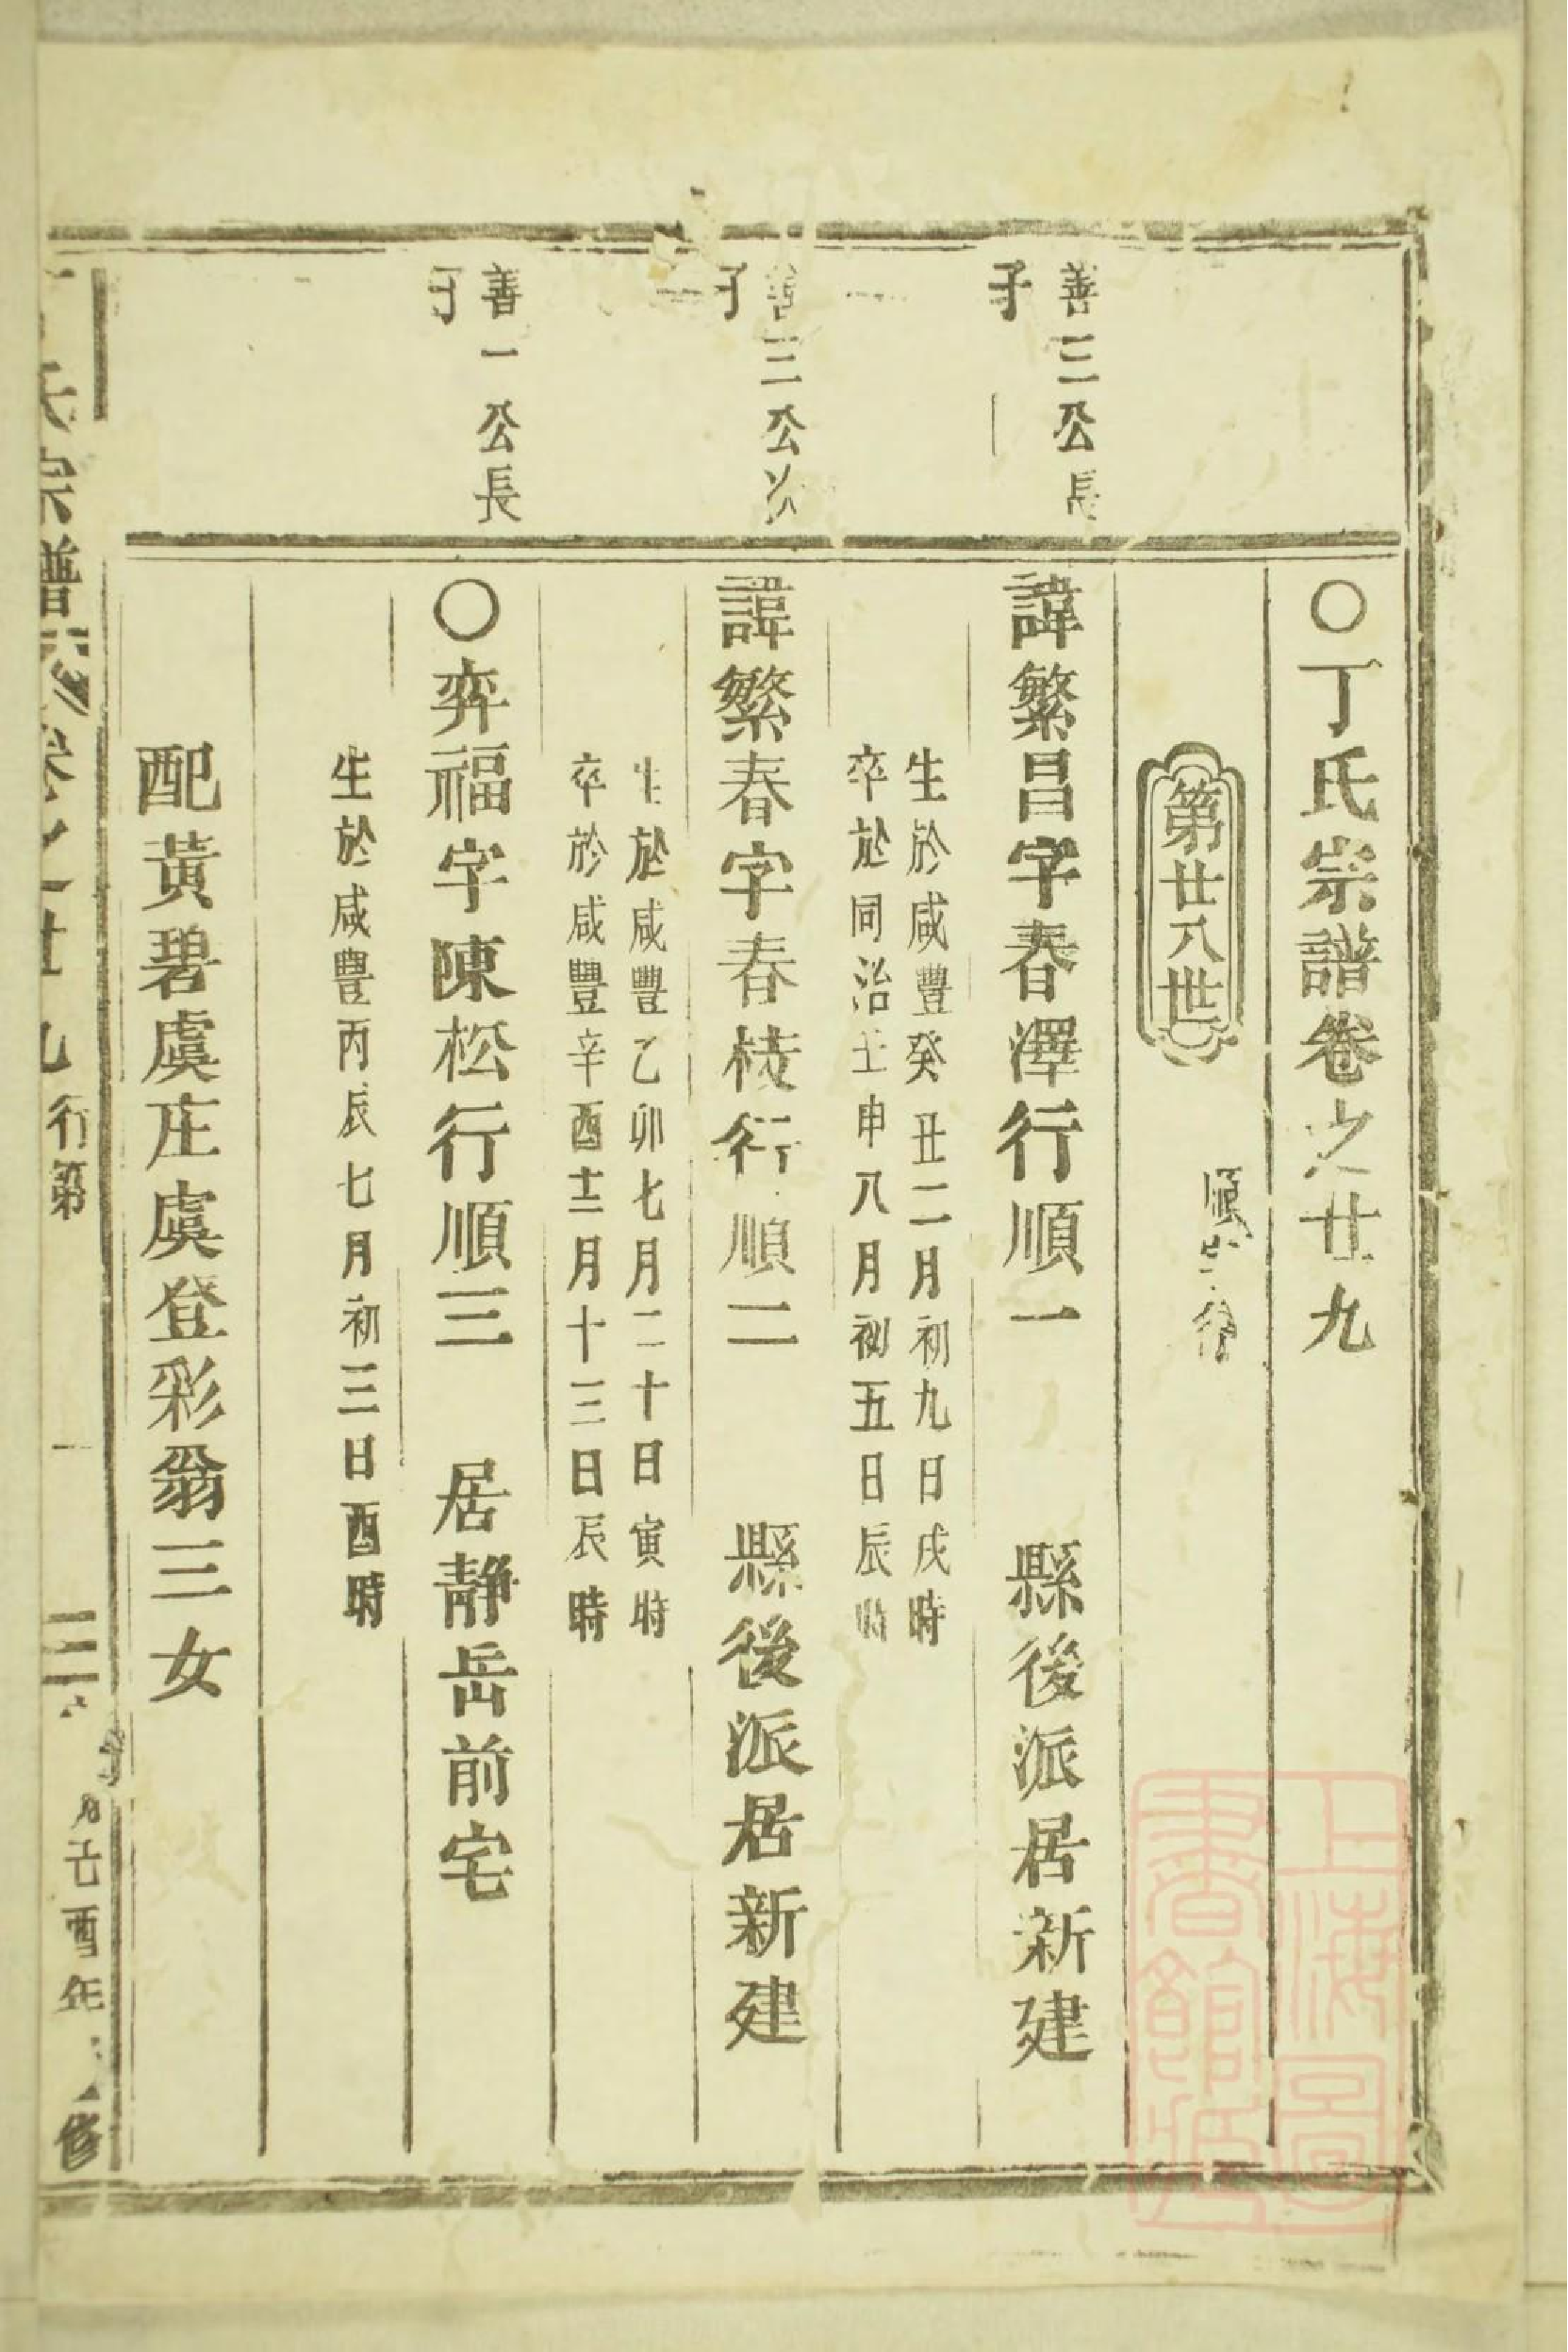 ○丁氏宗譜卷之廿九
第廿八世
順字行
善三公長
子
諱繁昌字春澤行順一 縣後派居新建
生於咸豐癸丑二月初九日戌時
卒於同治壬申八月初五日辰時
善三公次
子
諱繁春字春枝行順二 縣後派居新建
生於咸豐乙卯七月二十日寅時
卒於咸豐辛酉十二月十三日辰時
善一公長
子
○弈福字陳松行順三 居靜岳前宅
生於咸豐丙辰七月初三日酉時
配黃碧虞庄虞登彩翁三女
丁氏宗譜 卷之廿九 行第 一
己酉年 修
上海圖書館藏